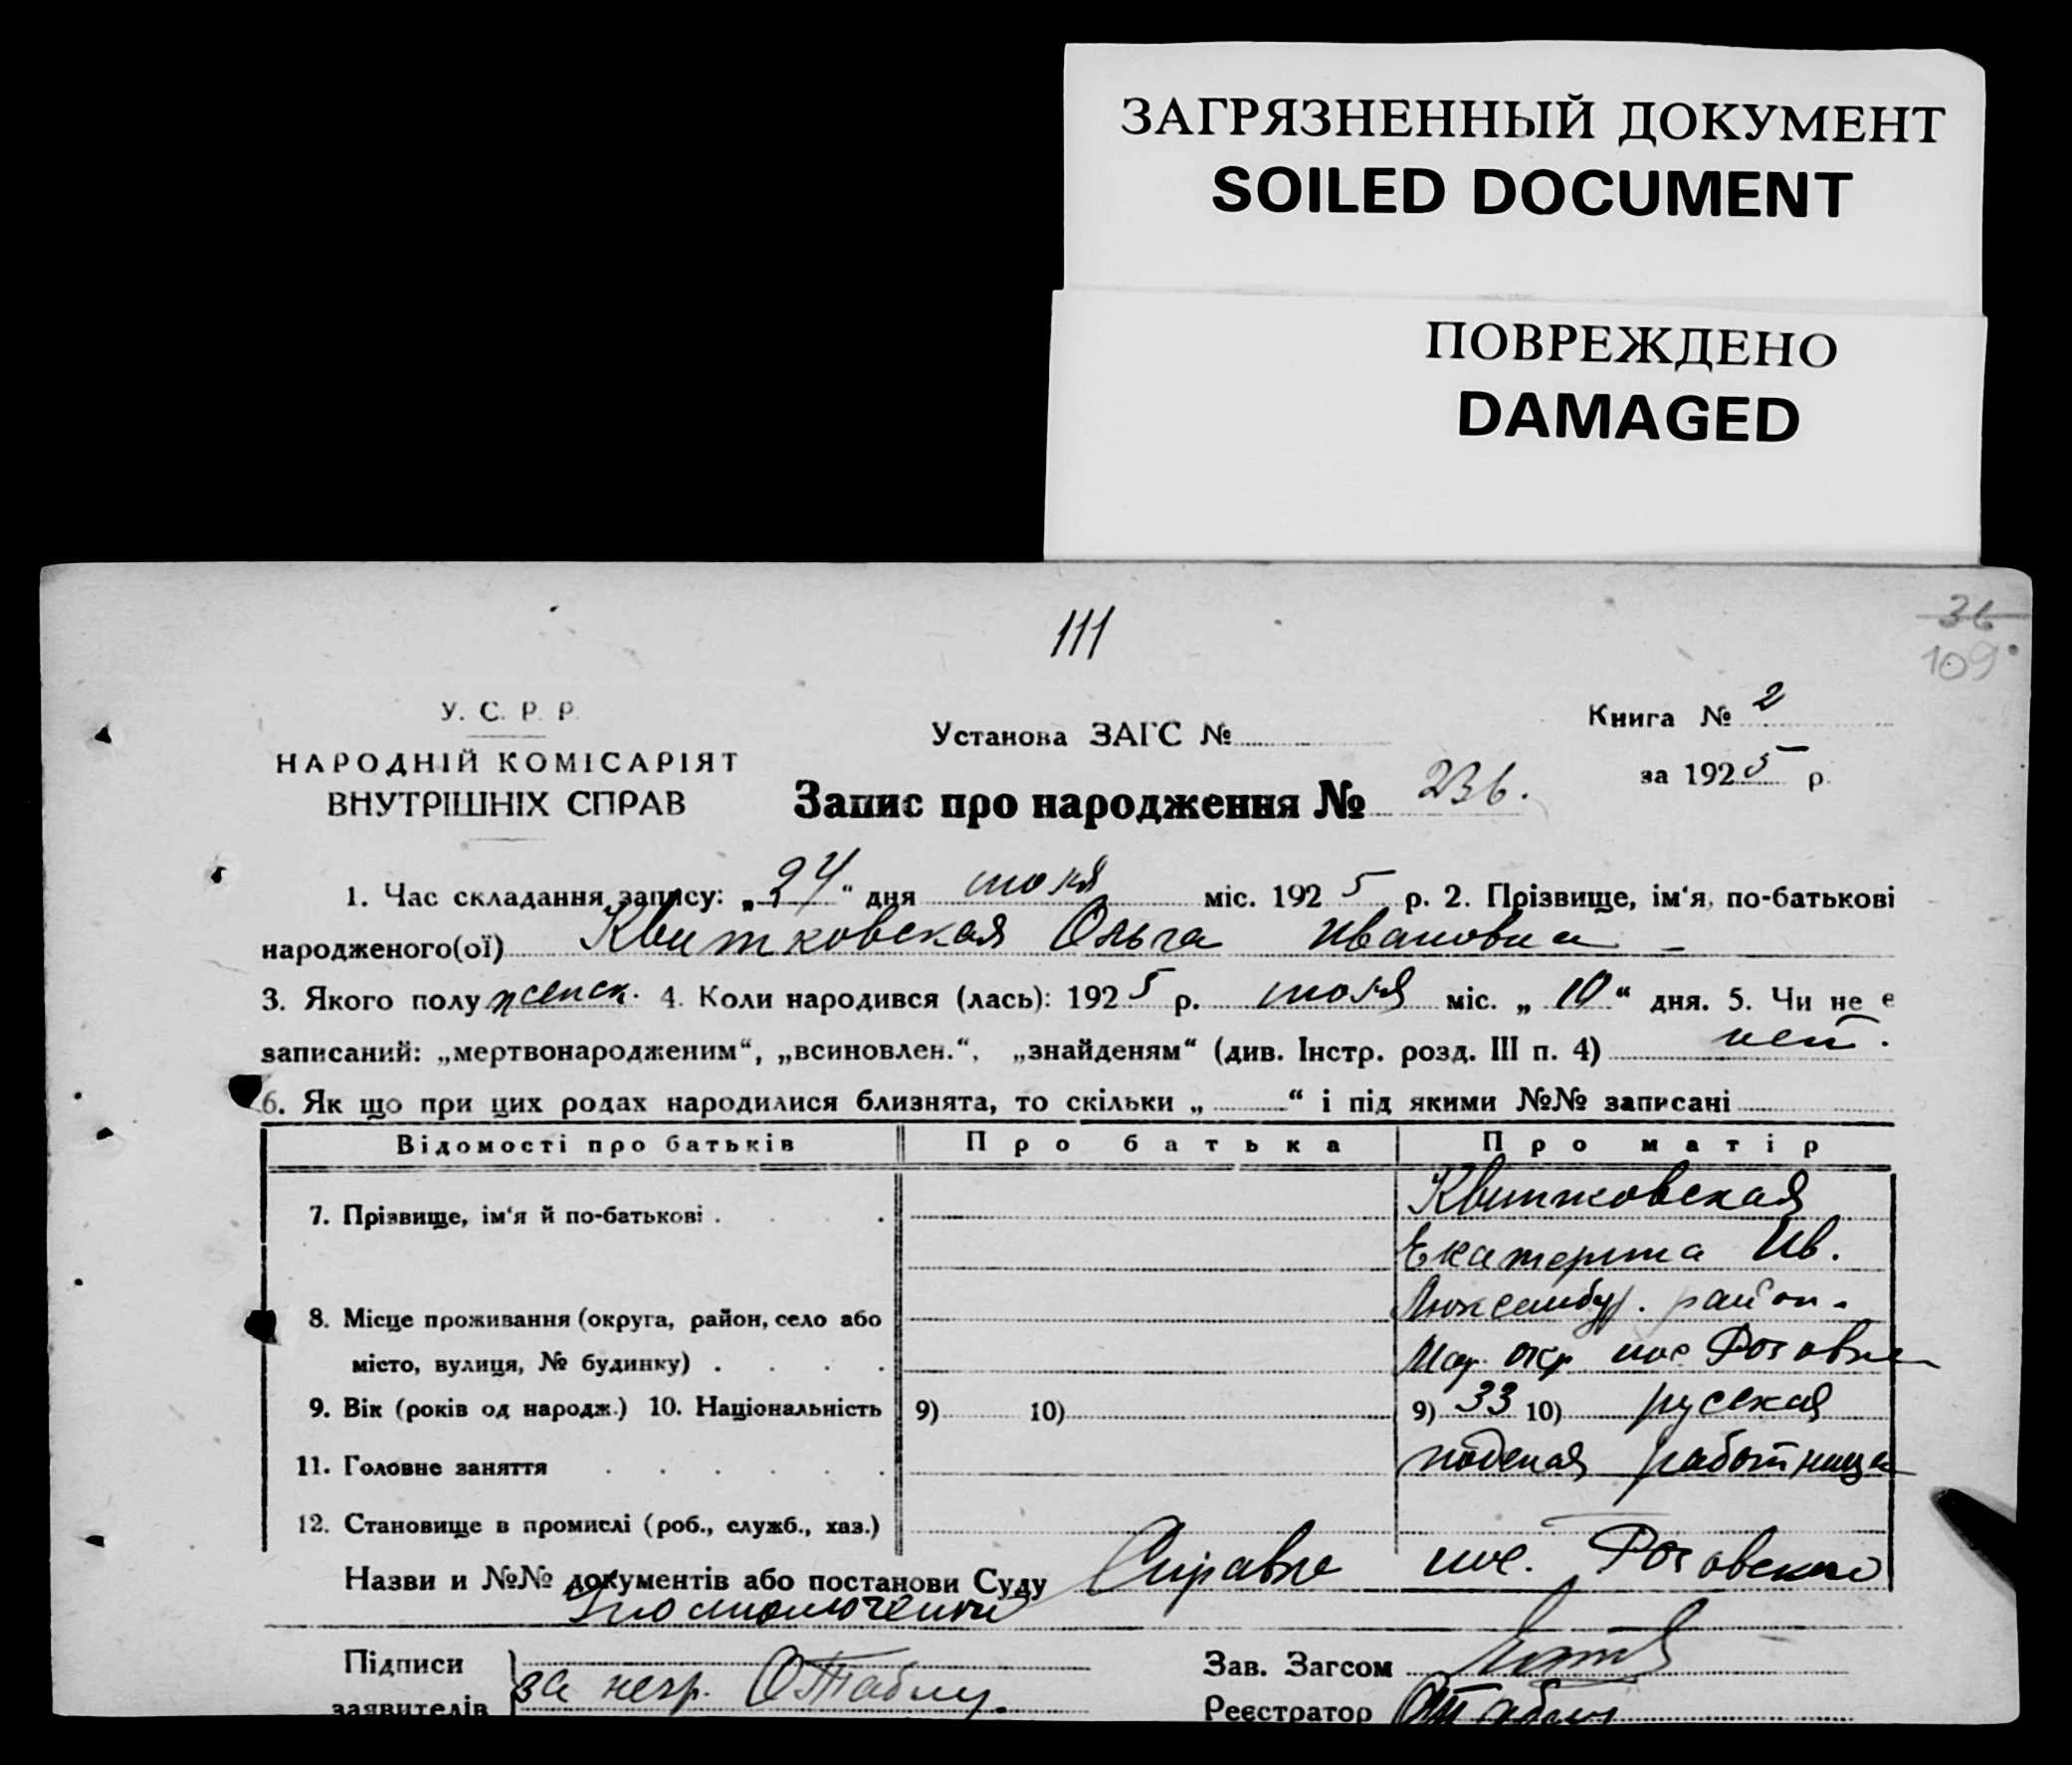 ЗАГРЯЗНЕННЫЙ ДОКУМЕНТ
SOILED DOCUMENT
ПОВРЕЖДЕНО
DAMAGED
111
36
109
У. С. Р. Р.
НАРОДНІЙ КОМІСАРІЯТ
ВНУТРІШНІХ СПРАВ
Установа ЗАГС №
Книга № 2
за 1925 р.
Запис про народження № 236.
1. Час складання запису: „24“ дня июля міс. 1925 р. 2. Прізвище, ім‘я, по-батькові
народженого(ої) Квитковская Ольга Ивановна
3. Якого полу женск. 4. Коли народився (лась): 1925 р. июля міс. „10“ дня. 5. Чи не є
записаний: „мертвонародженим“, „всиновлен.“, „знайденям“ (див. Інстр. розд. III п. 4) нет.
6. Як що при цих родах народилися близнята, то скільки „ “ і під якими №№ записані
Відомості про батьків Про батька Про матір
7. Прізвище, ім‘я й по-батькові . . . Квитковская
Екатерина Ив.
8. Місце проживання (округа, район, село або Люксембур. район.
місто, вулиця, № будинку) . . . . Мар. окр. пос. Розовка
9. Вік (років од народж.) 10. Національність 9) 10) 9) 33 10) русская
11. Головне заняття . . . . . . работница
12. Становище в промислі (роб., служб., хаз.)
Назви и №№ документів або постанови Суду Справка пос. Розовского
Підписи
заявителів за негр. ОТабл
Зав. Загсом
Реєстратор